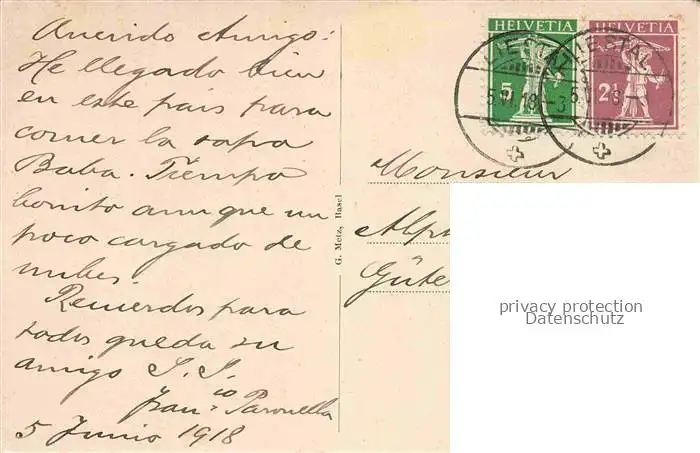 Querido Amigo:
He llegado bien
en este pais para
comer la sopa
Baba. Tiempo
bonito aun que un
poco cargado de
nubes.
Recuerdos para
todos queda su
amigo S. S.
Fran=co Paronella
5 Junio 1918
G. Metz, Basel
HELVETIA
5
HELVETIA
2½
LIESTAL
5.VI.18-3
LIESTAL
Monsieur
Alph
Güte
privacy protection
Datenschutz